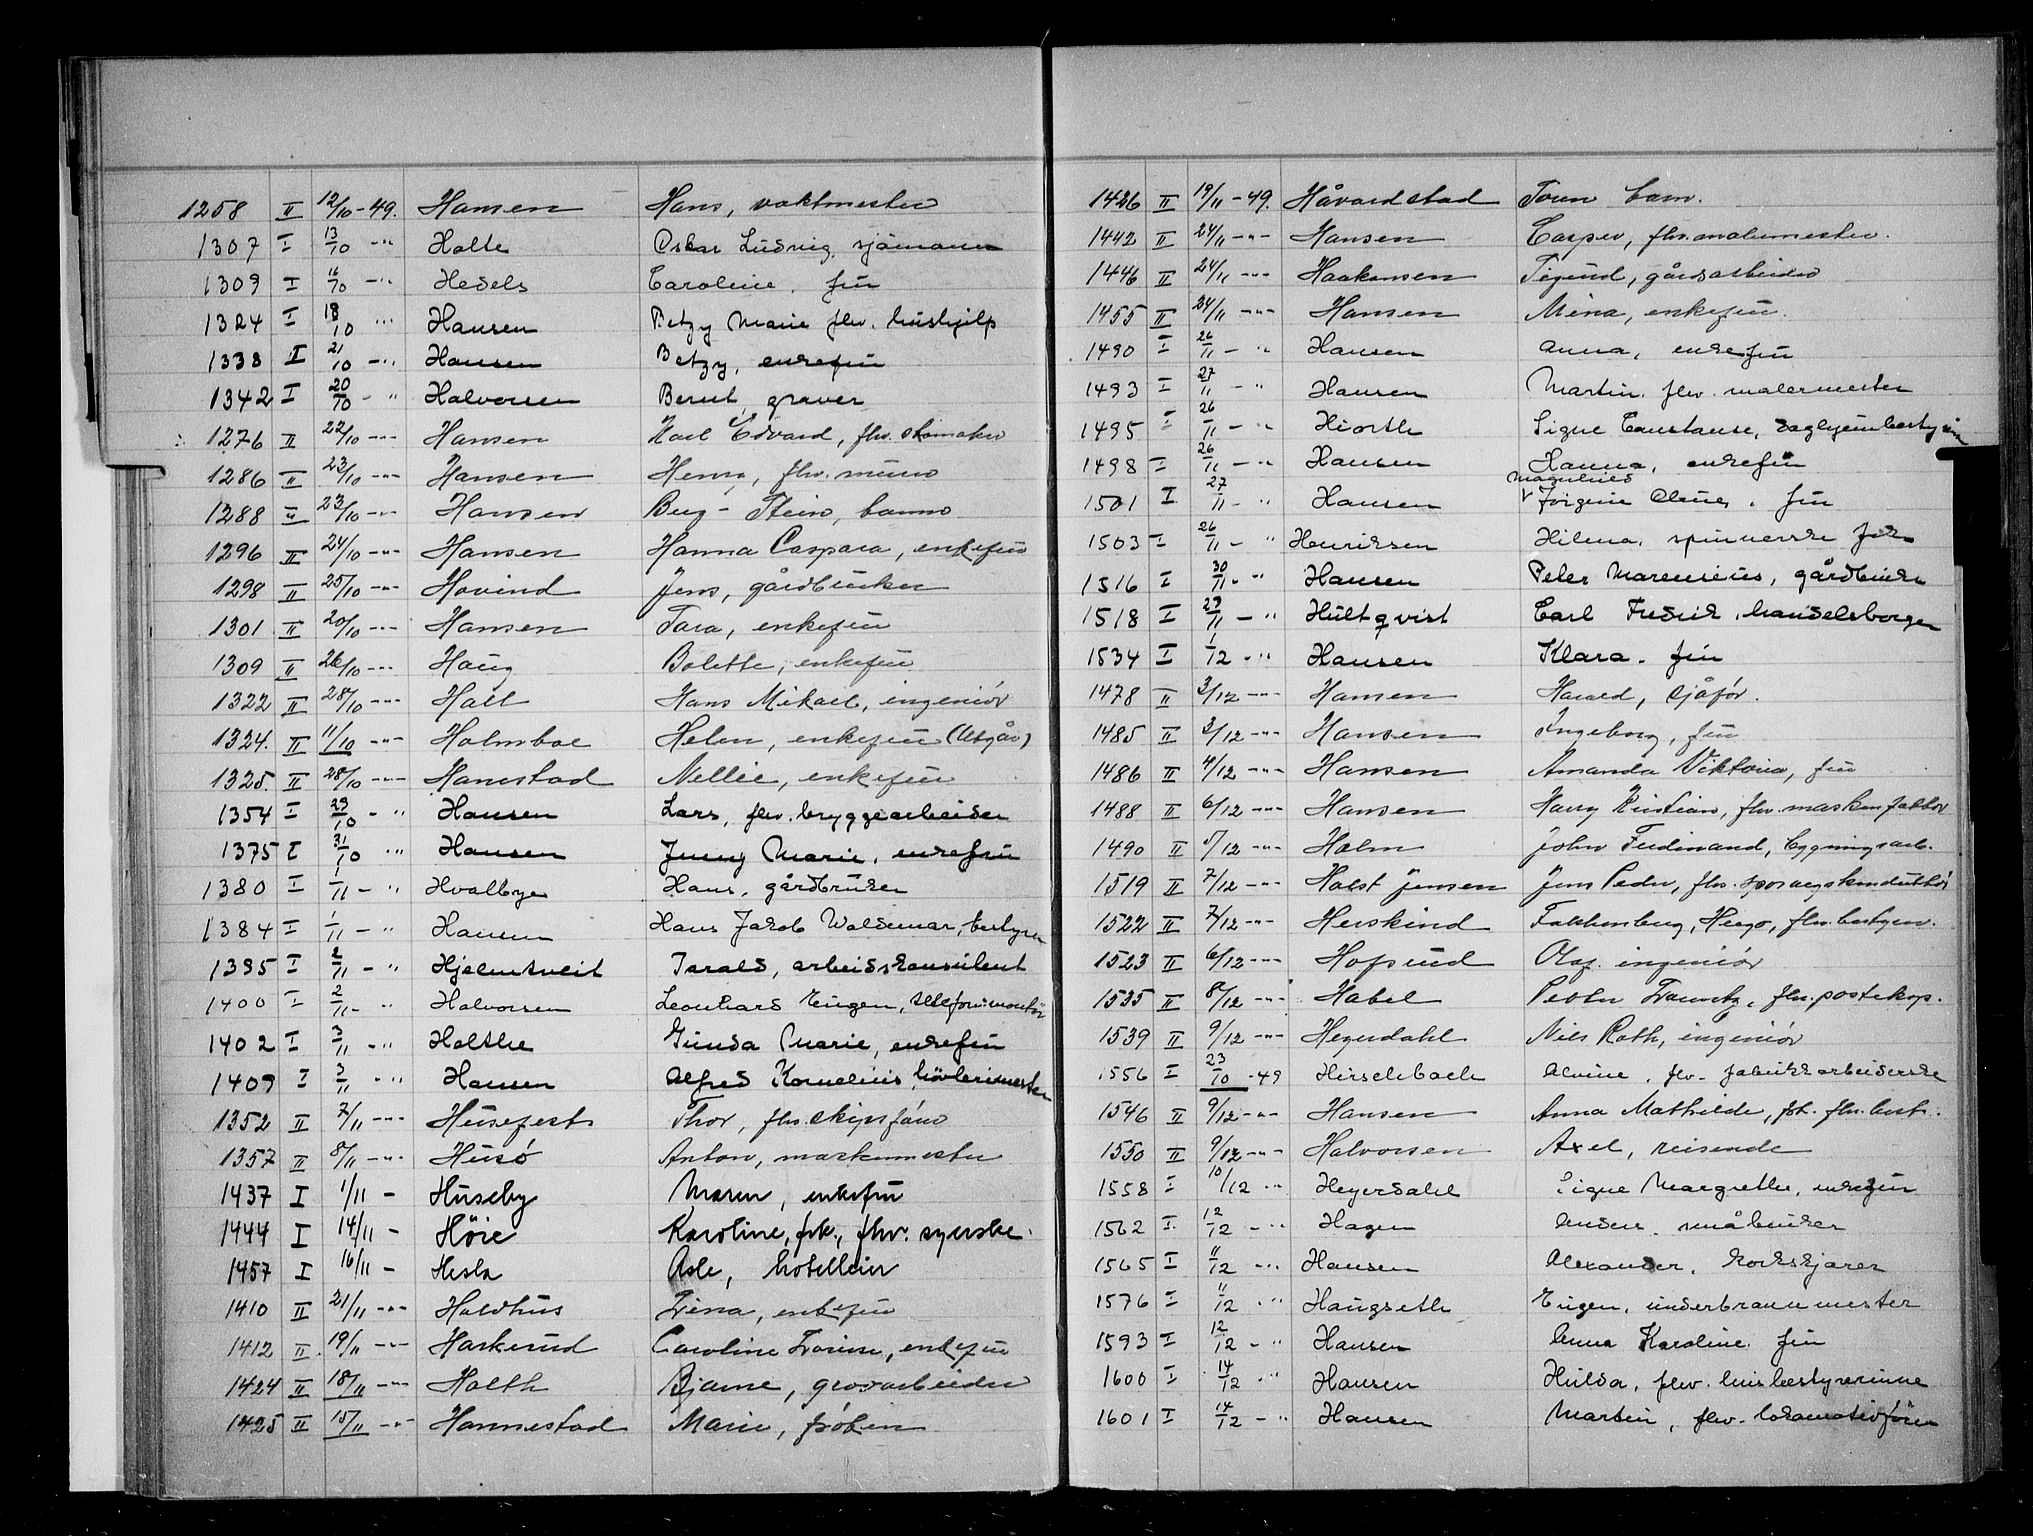 1258 II 12/10-49. Hansen Hans, vaktmester
1307 I 13/10 -"- Holte Oskar Ludvig, sjömann
1309 I 16/10 -"- Hedels Caroline, fru
1324 I 18/10 -"- Hansen Betzy Marie flv. hushjelp
1338 I 21/10 -"- Hansen Betzy, enkefru
1342 I 20/10 -"- Halvorsen Bernt, graver
1276 II 22/10 -"- Hansen Karl Edvard, fhv. skomaker
1286 II 23/10 -"- Hansen Henry, fhv. murer
1288 II 23/10 -"- Hansen Berg-Stein, barn
1296 II 24/10 -"- Hansen Hanna Caspara, enkefru
1298 II 25/10 -"- Hovind Jens, gårdbruker
1301 II 20/10 -"- Hansen Tara, enkefru
1309 II 26/10 -"- Haug Bolette, enkefru
1322 II 28/10 -"- Hall Hans Mikael, ingeniör
1324. II 11/10 -"- Holmboe Helen, enkefru (Utgår)
1325. II 28/10 -"- Hamstad Nellie, enkefru
1354 I 29/10 -"- Hansen Lars, flv. bryggearbeider
1375 I 31/10 -"- Hansen Jenny Marie, enkefru
1380 I 1/11 -"- Hvalbye Hans, gårdbruker
1384 I 1/11 -"- Hansen Hans Jakob Waldemar, bestyrer
1395 I 2/11 -"- Hjelmtveit Harald, arbeidskonsulent
1400 I 2/11 -"- Halvorsen Leonhard Eugen, telefonmontör
1402 I 3/11 -"- Holthe Gunda Marie, enkefru
1409 I 3/11 -"- Hansen Alfred Kornelius hövlerimester
1352 II 7/11 -"- Husefest Thor, fhv. skipsförer
1357 II 8/11 -"- Husö Anton, maskinmester
1437 I 1/11 - Huseby Maren, enkefru
1444 I 14/11 - Høie Karoline, frk., fhv. syerske.
1457 I 16/11 - Hesla Asle, hotelleier
1410 II 21/11 -"- Holdhus Trina, enkefru
1412 II 19/11 -"- Harkerud Caroline Lovise, enkefru
1424 II 18/11 -"- Holth Bjarne, grovarbeider
1425 II 15/11 -"- Hannestad Marie, fröken
1426 II 19/11-49. Håvardstad Toren barn.
1442 II 24/11 -"- Hansen Casper, fhv. malermester.
1446 II 24/11 -"- Haakensen Sigurd, gårdsarbeider
1455 II 24/11 -"- Hansen Mina, enkefru.
1490 I 26/11 - " Hansen Anna, enkefru
1493 I 27/11 - " Hansen Martin, flv. malermester
1495 I 26/11 - " Hiorth Signe Constanse, daghjembestyrerin
1498 I 26/11 - " Hansen Hanna, enkefru
1501 I 27/11 - " Hansen Magnhild Jörgine Oline, fru
1503 I 26/11 - " Henriksen Hilena, spinnerske frk.
1516 I 30/11 - " Hansen Peter Marensius, gårdbruker
1518 I 29/11 - " Hultqvist Carl Fredrik, handelsborger
1534 I 1/12 -" Hansen Klara. fru
1478 II 3/12 -"- Hansen Harald, sjåför.
1485 II 3/12 -"- Hansen Ingeborg, fru
1486 II 4/12 -"- Hansen Amanda Viktoria, fru
1488 II 6/12 -"- Hansen Harry Kristian, fhv. maskinfaktor
1490 II 5/12 -"- Holm John Ferdinand, bygningsarb.
1519 II 7/12 -"- Holst Jensen Jens Peder, fhv. sporvegskonduktör
1522 II 7/12 -"- Herskind Falkenberg, Hugo, fhv. bestyrer.
1523 II 6/12 -"- Hofsrud Olaf, ingeniör
1535 II 8/12 -"- Habel Peder Frantz, fhv. posteksp.
1539 II 9/12 -"- Heyerdahl Nils Roth, ingeniör
1556 I 23/10 -49 Hirschbach Alvine, flv. fabrikkarbeiderske
1546 II 9/12 -"- Hansen Anna Mathilde, frk. fhv. best.
1550 II 9/12 -"- Halvorsen Axel, reisende
1558 I 10/12 -" Heyerdahl Signe Margrethe, enkefru
1562 I 12/12 -" Hagen Anders, småbruker
1565 I 11/12 -" Hansen Alexander, korkskjærer
1576 I 11/12 -" Haugseth Eugen, underbrannmester
1593 I 12/12 -" Hansen Anna Karoline, fru
1600 I 14/12 -" Hansen Hulda, flv. husbestyrerinne
1601 I 14/12 -" Hansen Martin, flv. lokomotivförer